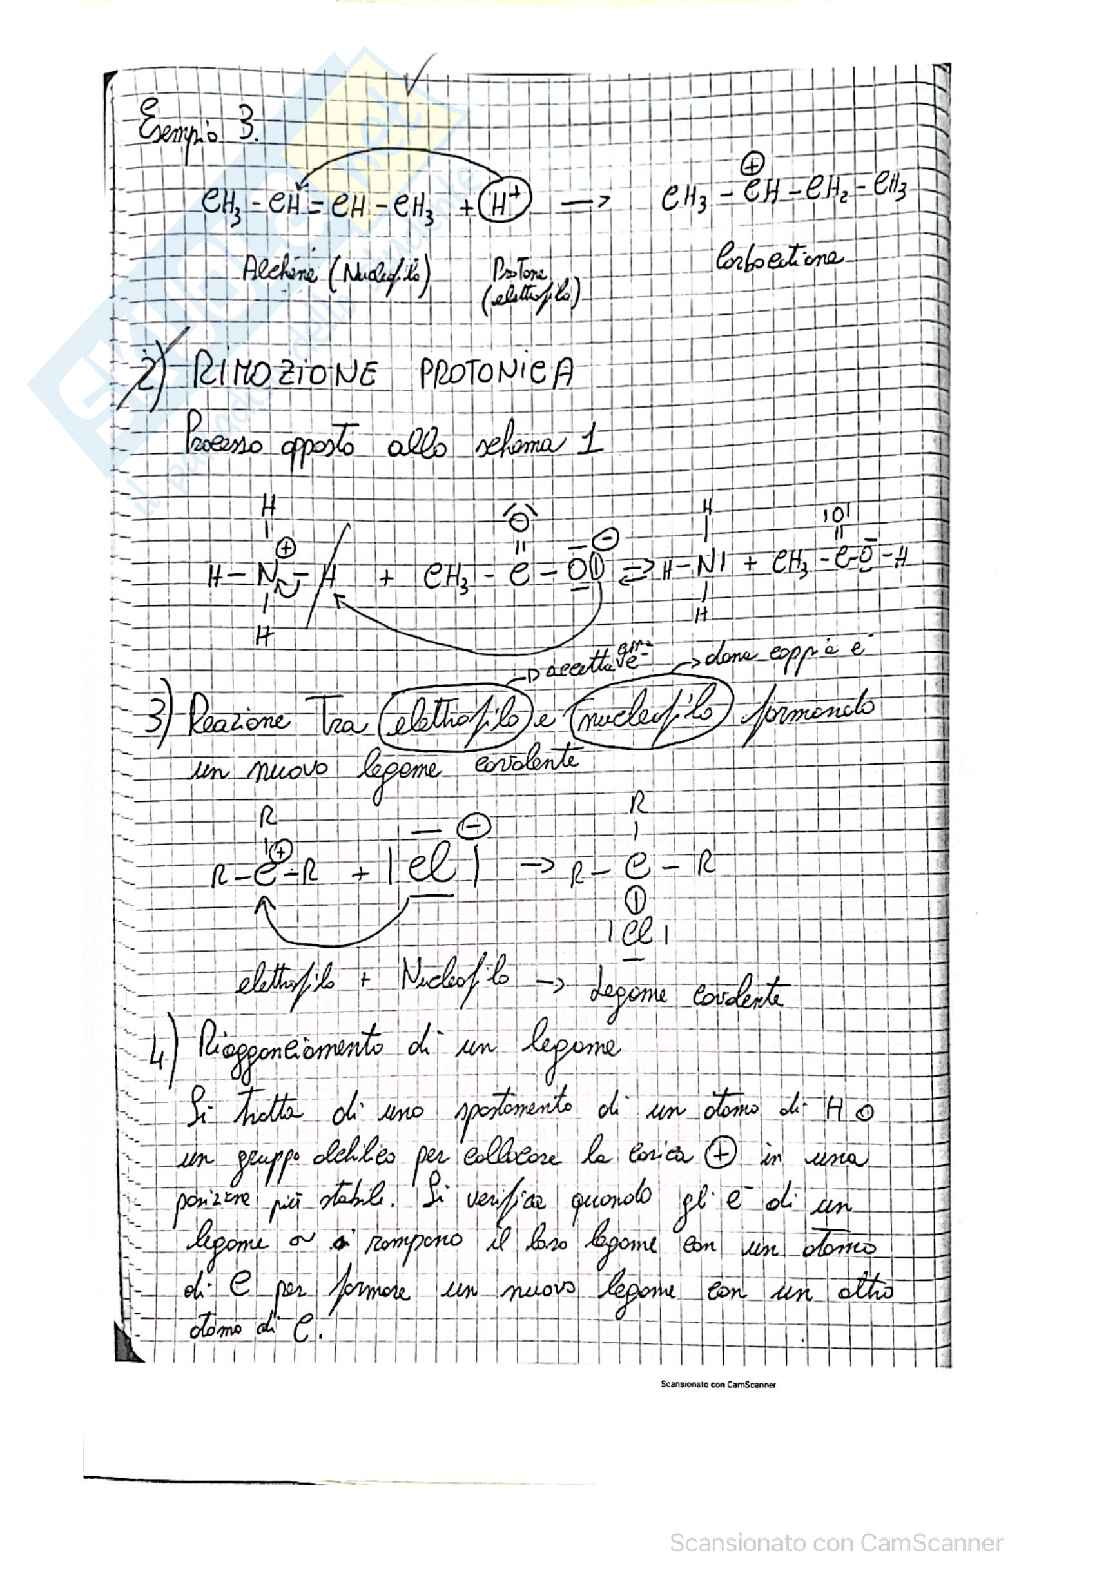 Esempio 3.
CH3 - CH = CH - CH3 + H+ → CH3 - CH⊕ - CH2 - CH3
Alchene (Nucleofilo) Protone (elettrofilo) Carbocatione
2) RIMOZIONE PROTONICA
Processo opposto allo schema 1
H H
O ⊖ |O|
H - N⊕ - H + CH3 - C - O ⇌ H - N| + CH3 - C - O - H
H H
→ accettare e- → dona coppia e-
3) Reazione Tra elettrofilo e nucleofilo formando
un nuovo legame covalente
R R
R - C⊕ - R + |Cl|⊖ → R - C - R
|Cl|
elettrofilo + Nucleofilo → Legame covalente
4) Riagganciamento di un legame
Si tratta di uno spostamento di un atomo di H o
un gruppo alchilico per collocare la carica ⊕ in una
posizione più stabile. Si verifica quando gli e- di un
legame σ si rompono il loro legame con un atomo
di C per formare un nuovo legame con un altro
atomo di C.
Scansionato con CamScanner
Scansionato con CamScanner